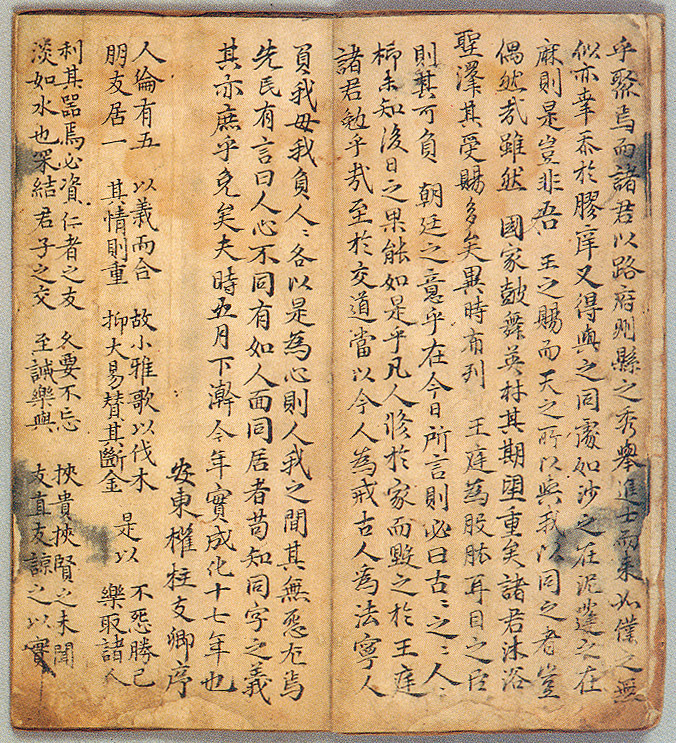 乎聚焉而諸君以路府州縣之秀舉進士而來如僕之無
似亦幸忝於膠庠又得與之同處如沙之在泥蓬之在
麻則是豈非吾 王之賜而天之所以與我以同之者豈
偶然哉雖然 國家鼓舞英材其期望重矣諸君沐浴
聖澤其受賜多矣異時布列 王庭為股肱耳目之臣
則其可負 朝廷之意乎在今日所言則必曰古〻之〻人〻
抑未知後日之果能如是乎凡人修於家而毀之於王庭
諸君勉乎哉至於交道當以今人為戒古人為法寧人
負我毋我負人〻各以是為心則人我之間其無惡尤焉
先民有言曰人心不同有如人面同居者苟知同字之義
其亦庶乎免矣夫時五月下澣今年實成化十七年也
安東權柱支卿序
人倫有五 以義而合 故小雅歌以伐木 是以 不恧勝己
朋友居一 其情則重 抑大易賛其斷金 樂取諸人
利其器焉必資仁者之友 久要不忘 挾貴挾賢之未聞
淡如水也深結君子之交 至誠樂與 友直友諒之以實